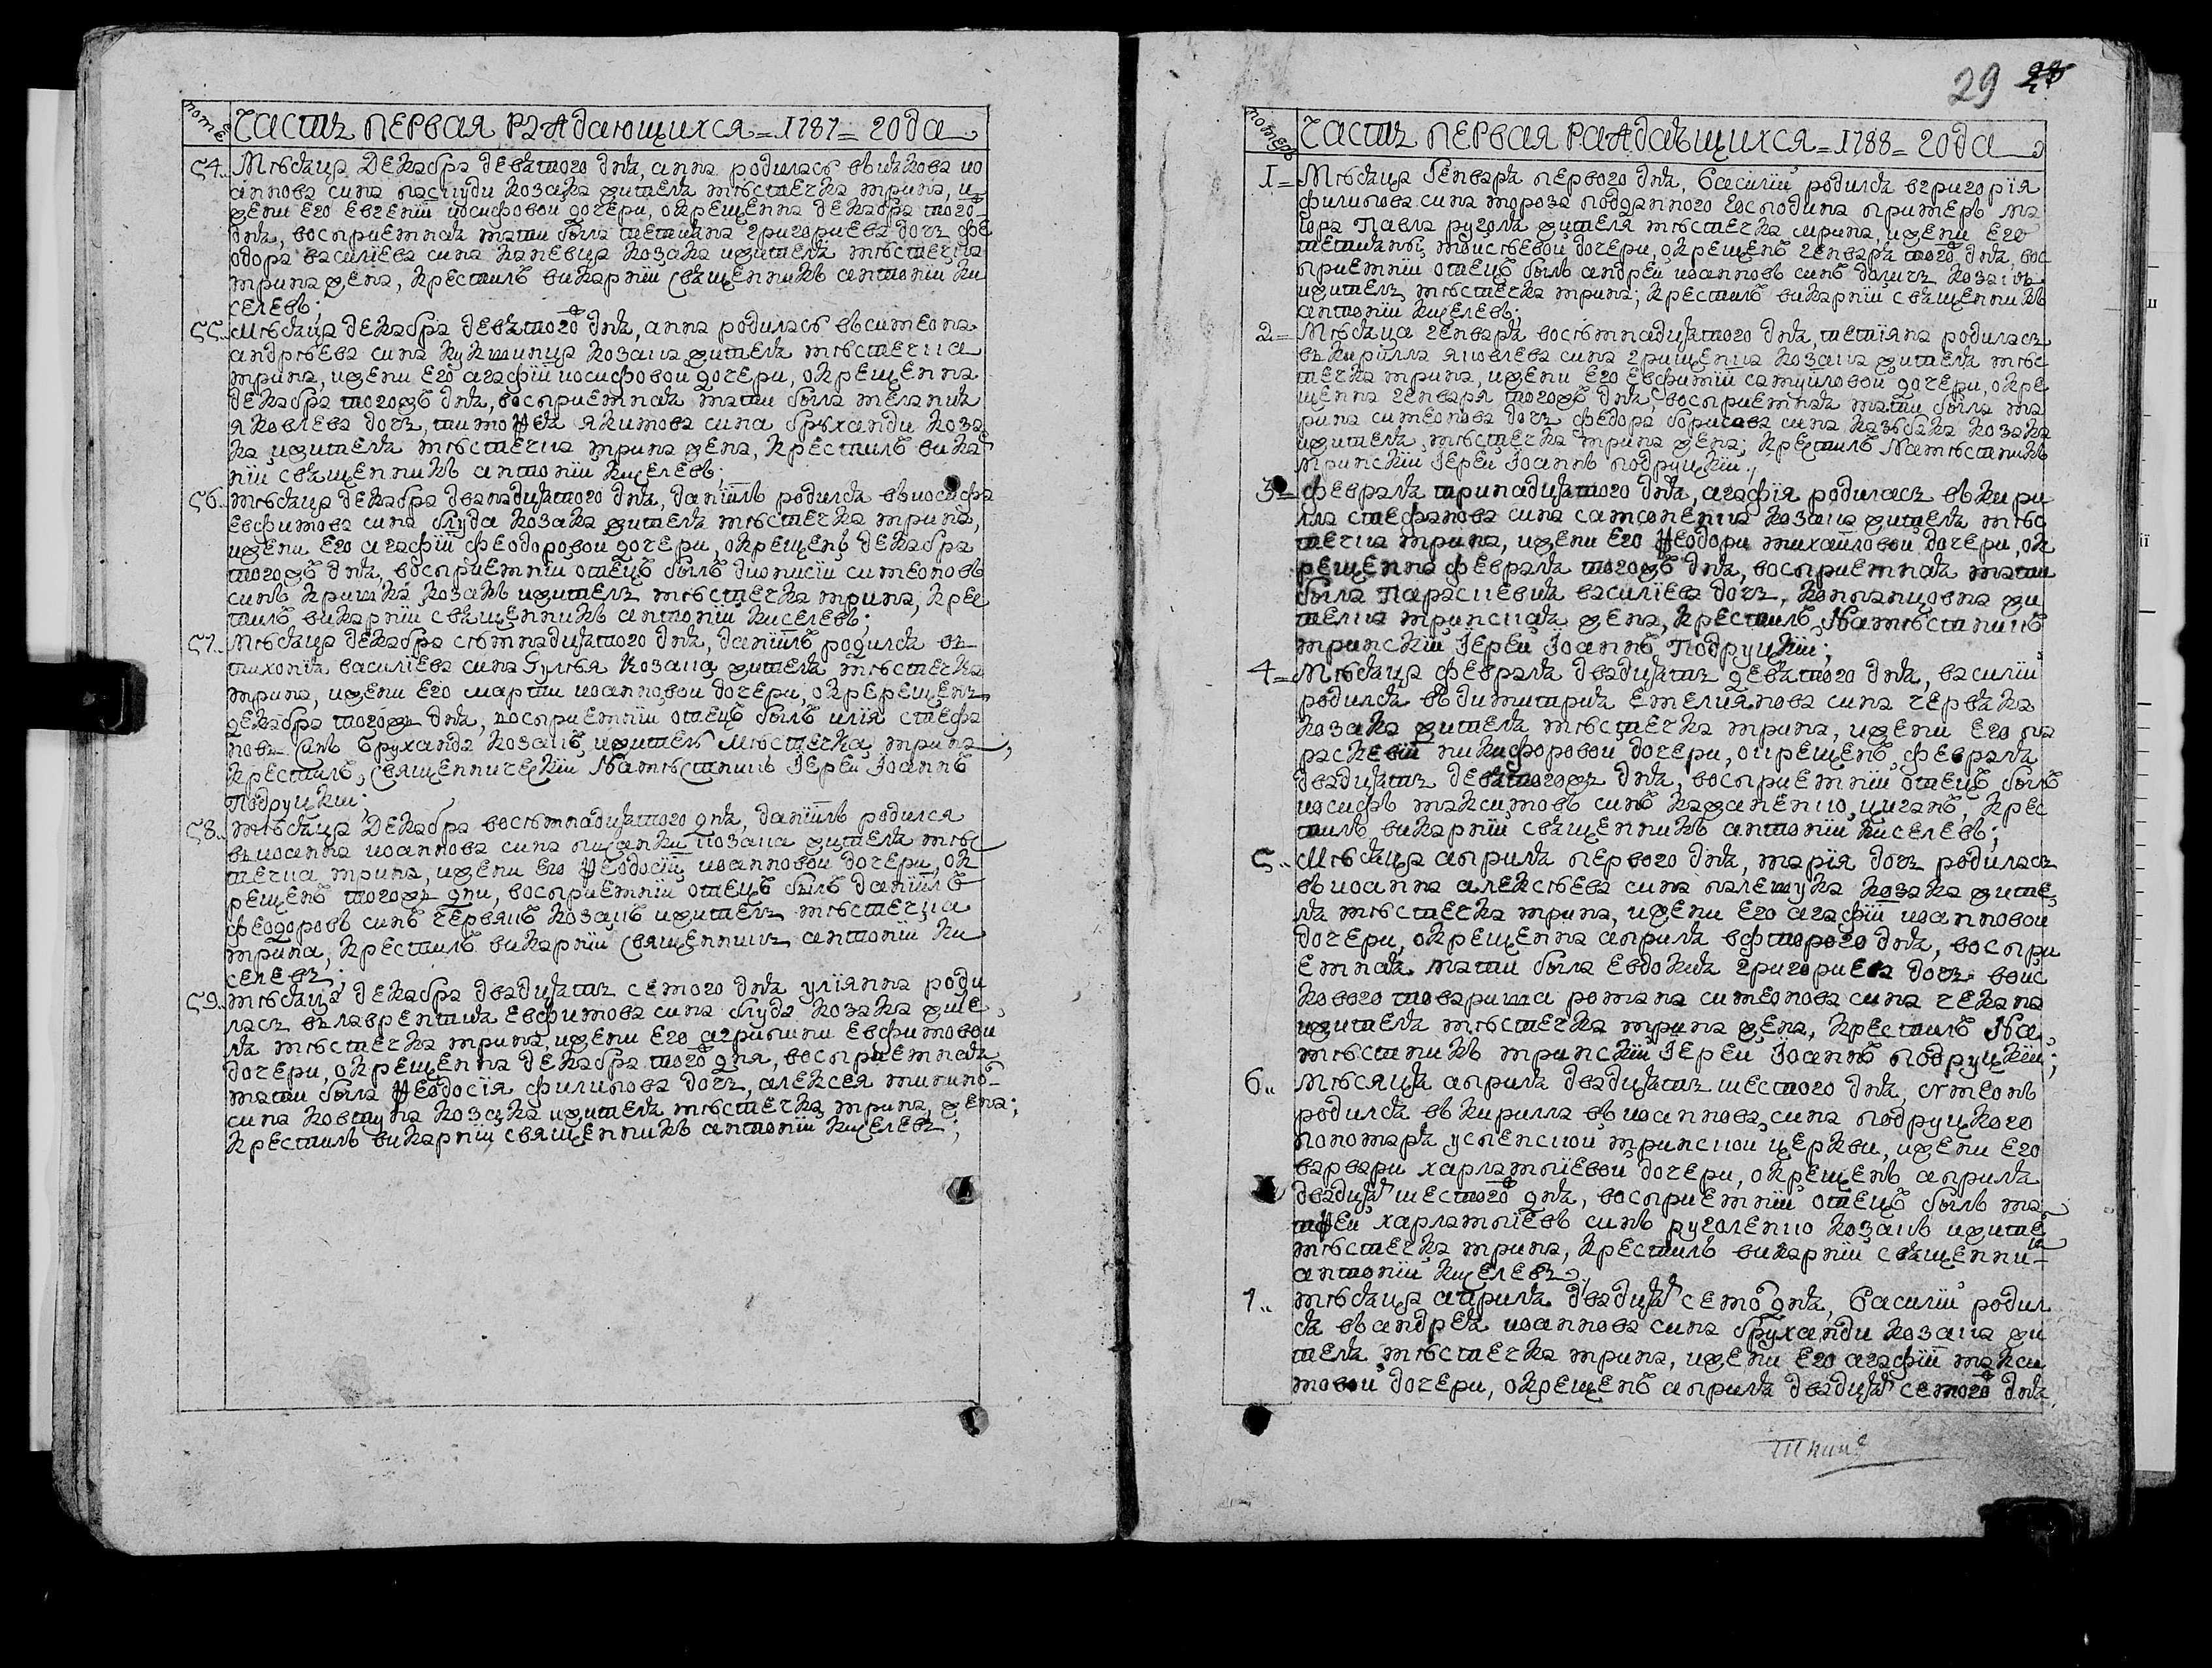 номеръ
Часть первая раждающихся = 1787 = года
54.. Мѣсяца Декабра девятого дня, анна родилась въ иякова ио
аннова сина паскуди козака жителя мѣстечка ирина, и
жени его евгеніи иосифовои дочери, окрещенна декабра тогож
дня, восприемная мати была татияна григориева дочъ фе
одора василіева сина каневца козака и жителя мѣстечка
ирина жена, крестилъ викарніи священникъ антоніи ки
селевъ;
55.. Мѣсяца декабра девятогож дня, анна родилась въ симеона
андрѣева сина кукшинца козака жителя мѣстечка
ирина, и жени его агафіи иосифовои дочери, окрещенна
декабра тогожъ дня, восприемная мати была мелания
яковлева дочъ, тимофея якимова сина бруханди коза
ка и жителя мѣстечка ирина жена, крестилъ вика
ніи священникъ антоніи киселевъ;
56.. мѣсяца декабра дванадцятого дня, даніилъ родился въ иосифа
евфимова сина блуда козака жителя мѣстечка ирина,
и жени его агафіи феодоровои дочери, окрещенъ декабра
тогожъ дня, восприемніи отецъ былъ дионисіи симеоновъ
синъ кришка козакъ и житель мѣстечка ирина, крес
тилъ викарніи священникъ антоніи киселевъ;
57.. Мѣсяца декабра сѣмнадцятого дня, даніилъ родился въ
тихонія василіева сина козака жителя мѣстечка
ирина, и жени его марти иоанновои дочери, окререщенъ
декабра тогожъ дня, восприемніи отецъ былъ илія стефа
новъ синъ бруханда козакъ и житель мѣстечка ирина,
крестилъ, священническіи намѣстникъ іереи іоаннъ
подруцкіи;
58.. мѣсяца декабра восѣмнадцятого дня, даніилъ родился
въ иоанна иоаннова сина писанки козака жителя мѣс
течка ирина, и жени его феодосіи иоанновои дочери, ок
рещенъ тогожъ дни, восприемніи отецъ былъ даніилъ
феодоровъ синъ червякъ козакъ и житель мѣстечка
ирина, крестилъ викарніи священникъ антоніи ки
селевъ;
59.. мѣсяца декабра двадцять семого дня улиянна роди
лась въ лаврентия евфимова сина блуда козака жите
ля мѣстечка ирина, и жени его агрипини евфимовои
дочери, окрещенна декабра тогож дня, восприемная
мати была феодосія филипова дочъ, алексея
сина ковтуна козака и жителя мѣстечка ирина жена;
крестилъ викарніи священникъ антоніи киселевъ;
29 28
номеръ
Часть первая раждающихся = 1788 = года
1 = Мѣсяца генваря первого дня, василіи родился в григорія
филипова сина мороза подданного господина примеръ ма
іора павла руголя жителя мѣстечка ирина, и жени его
татияны моисѣевои дочери, окрещенъ генваря тогож дня, вос
приемніи отецъ былъ андреи иоанновъ синъ козакъ
и житель мѣстечка ирина; крестилъ викарніи священникъ
антоніи киселевъ;
2 = Мѣсяца генваря восѣмнадцятого дня, татіяна родилась
въ кирилла яковлева сина грищенка козака жителя мѣс
течка ирина, и жени его евфиміи самуиловои дочери, окре
щенна генваря тогожъ дня, восприемная мати была ма
рина симеонова дочъ феодора борисова сина казбака козака
и жителя мѣстечка ирина жена; крестилъ намѣстникъ
иринскіи іереи іоаннъ подруцкіи;
3 = февраля тринадцятого дня, агафія родилась въ кири
лла стефанова сина самсоненка козака жителя мѣс
течка ирина, и жени его феодори михаиловои дочери, ок
рещенна февраля тогожъ дня, восприемная мати
была параскевия василіева дочъ, жи
телка иринская жена, крестилъ намѣстникъ
иринскіи іереи іоаннъ подруцкіи;
4 = Мѣсяца февраля двадцять девятого дня, василіи
родился въ димитрия емелиянова сина червяка
козака жителя мѣстечка ирина, и жени его па
раскевіи никифоровои дочери, окрещенъ, февраля
двадцять девятогожъ дня, восприемніи отецъ былъ
иосифъ максимовъ синъ каженецко, циганъ, крес
тилъ викарніи священникъ антоніи киселевъ;
5.. Мѣсяца априля первого дня, марія дочъ родилась
въ иоанна алексѣева сина палешука козака жите
ля мѣстечка ирина, и жени его агафіи иоанновои
дочери, окрещенна априля вфторого дня, воспри
емная мати была евдокия григориева дочъ воис
кового товариша романа симеонова сина чекана
и жителя мѣстечка ирина жена, крестилъ на
мѣстникъ иринскіи іереи іоаннъ подруцкіи;
6.. Мѣсяця априля двадцять шестого дня, симеонъ
родился въ кирилла въ иоаннова сина подруцкого
пономаря успенскои иринскои церкви, и жени его
варвари харлампіевои дочери, окрещенъ априля
двадцят шестогож дня, восприемніи отецъ былъ ма
тфеи харлампіевъ синъ руголенко козакъ и жител
мѣстечка ирина, крестилъ викарніи священник
антоніи киселевъ;
7.. мѣсяца априля двадцят семо дня, василіи родил
ся въ андрея иоаннова сина бруханди козака жи
теля мѣстечка ирина, и жени его агафіи макси
мовои дочери, окрещенъ априля двадцят семогож дня